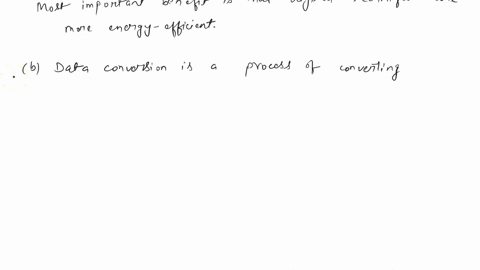 Most important benefit is that
more energy-efficient.
(b) Data conversion is a process of converting